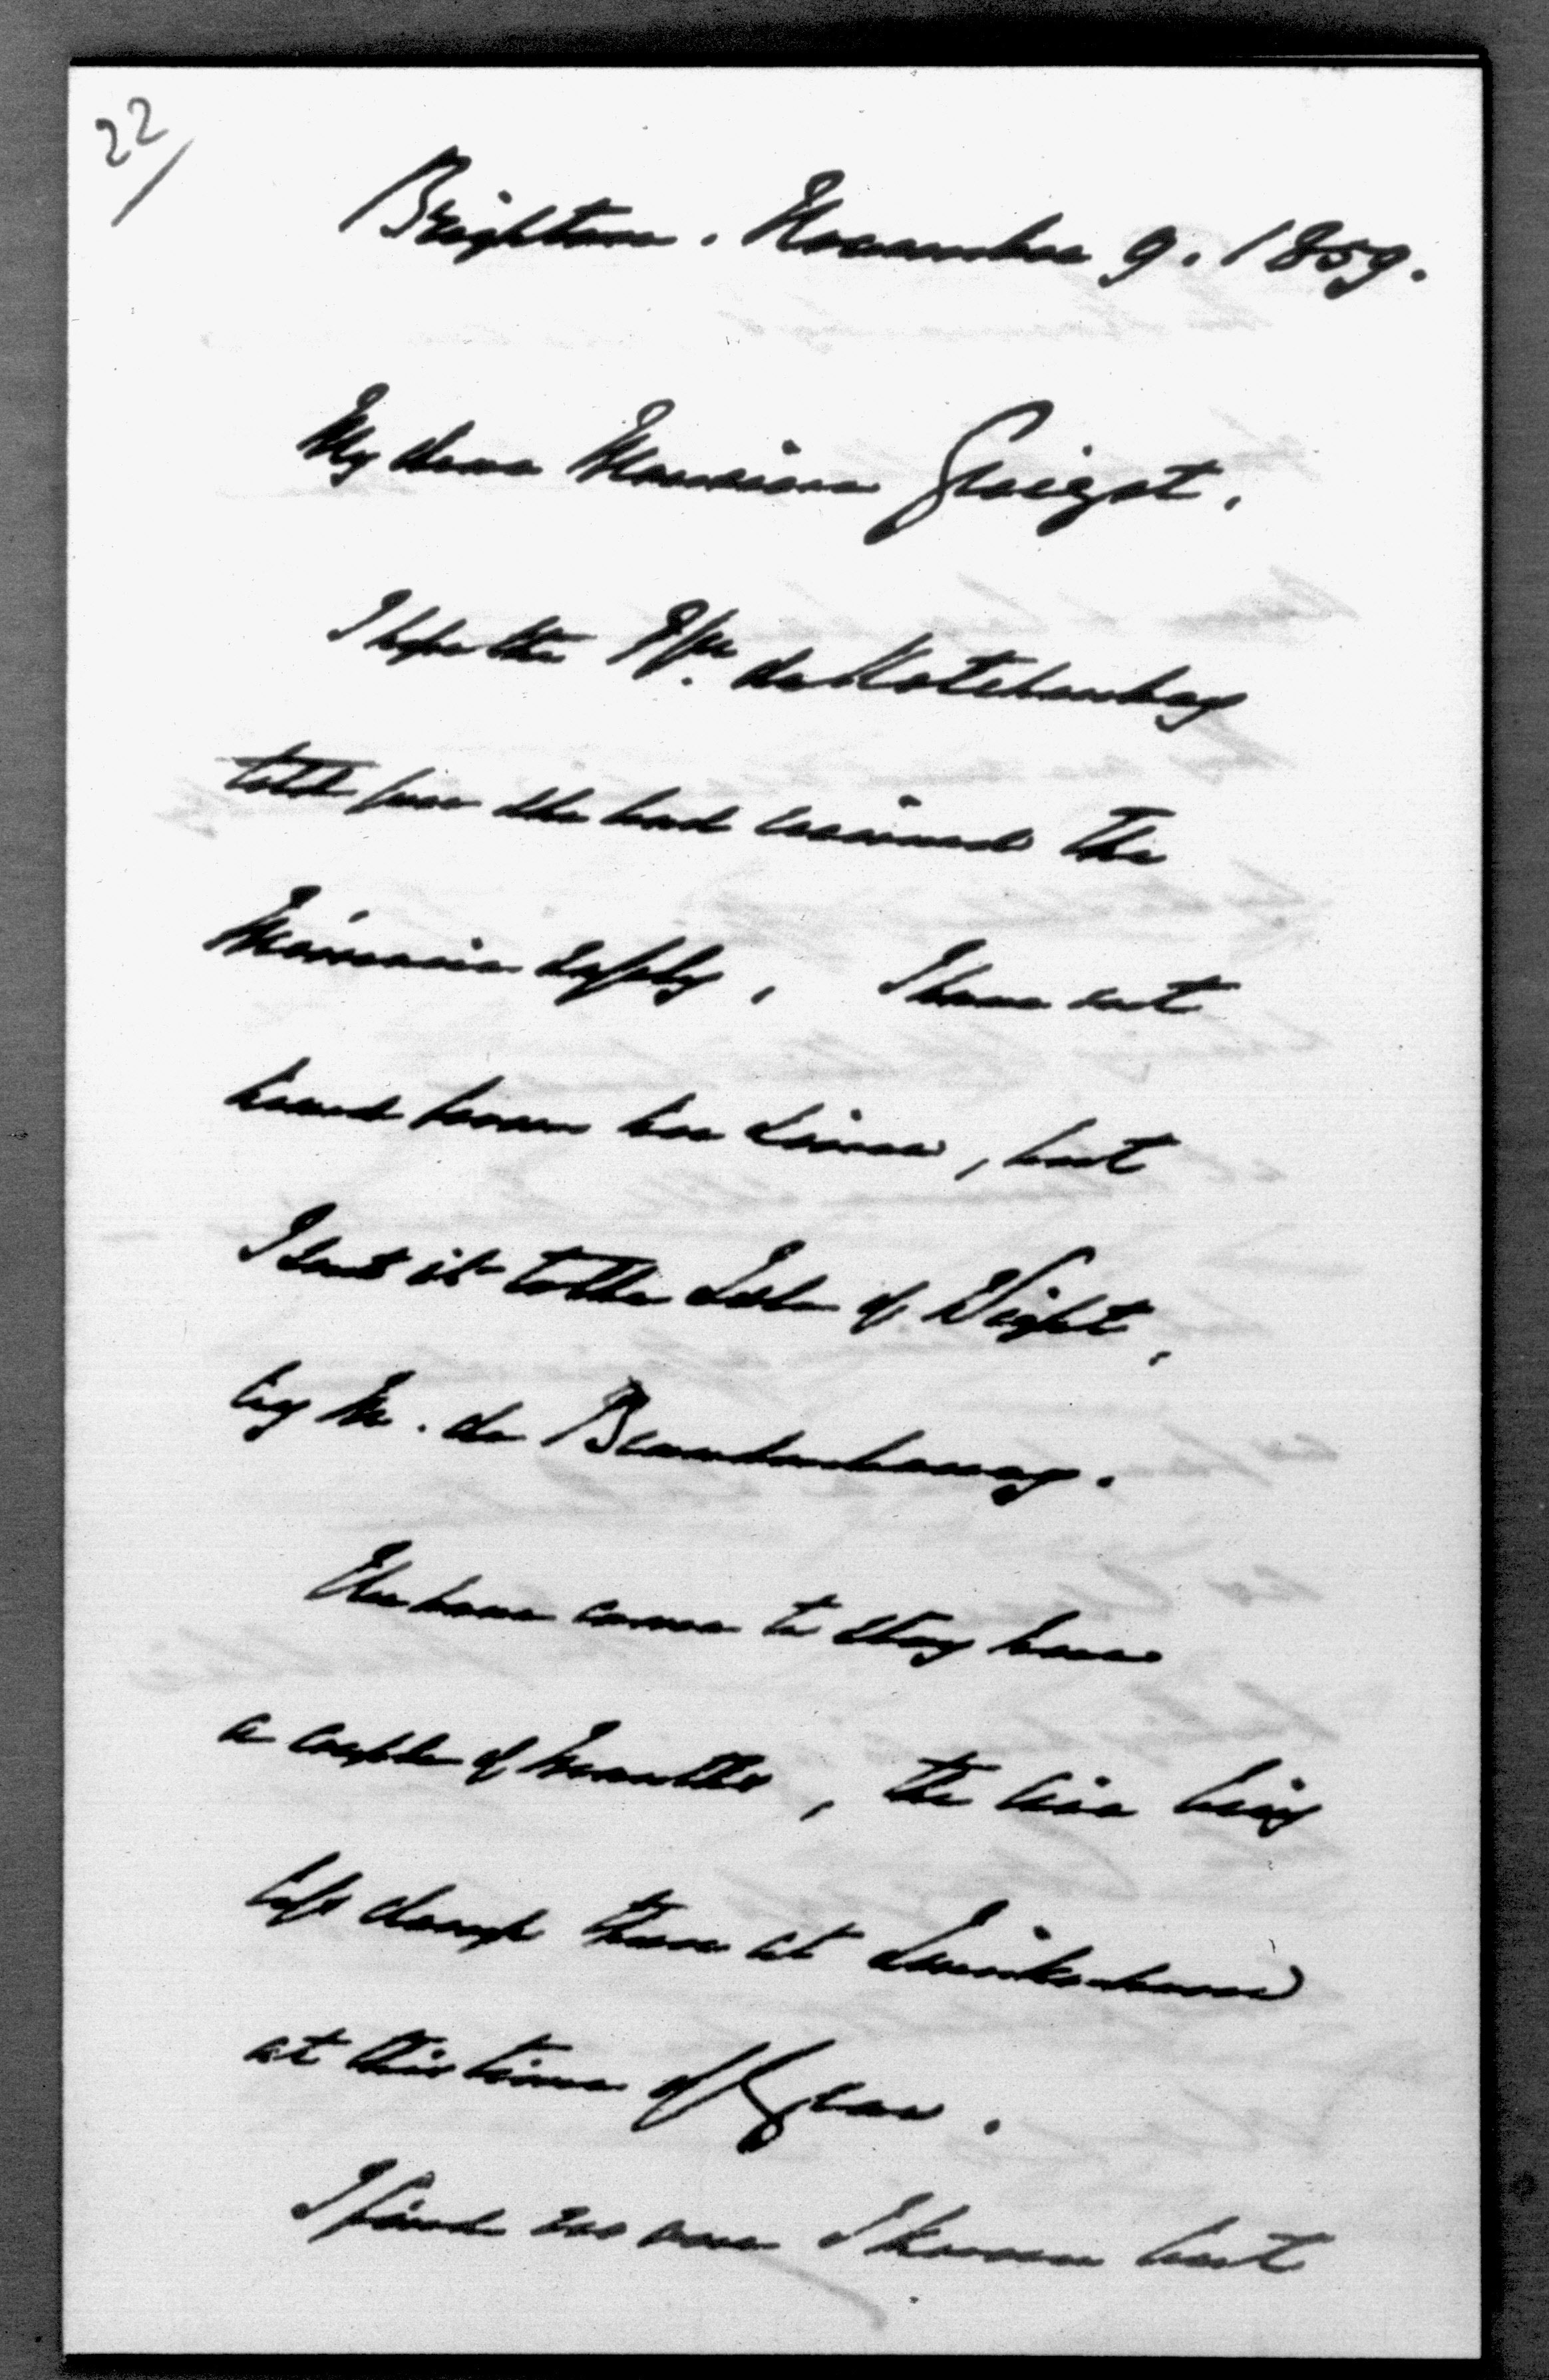 22/
Brighton. November 9. 1859.
My dear Monsieur Guizot,
I hope the Pss. de Kotchoubey
told you she had received the
Mémoire safely, I have not
heard from her since, but
I sent it to the Isle of Wight,
by M. de Brandenbourg.
We have come to stay here
a couple of months, the air being
less damp than at Twickenham
at this time of year.
I find no one I know but